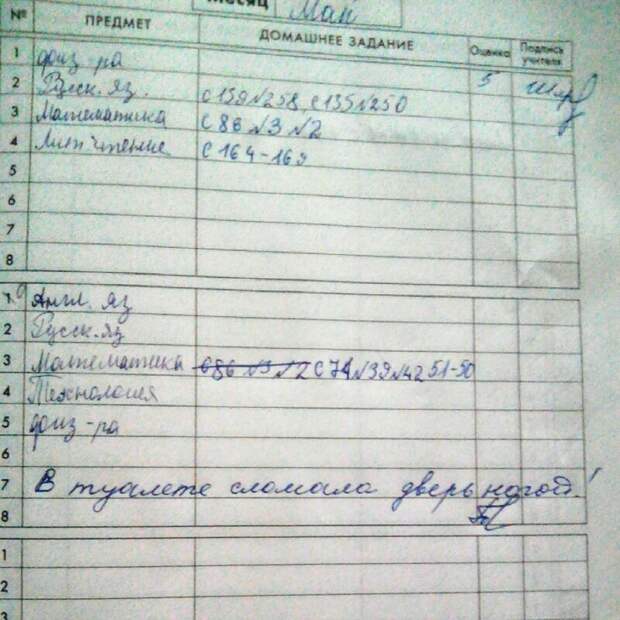 Месяц Май
№ ПРЕДМЕТ ДОМАШНЕЕ ЗАДАНИЕ Оценка Подпись учителя
1 физ-ра
2 Русск. яз. с 139 №258, с 135 №250 5
3 Математика с 86 №3 №2
4 Лит чтение с 164-169
5
6
7
8
1 Англ. яз
2 Русск. яз
3 Математика с 86 №3 №2 с 74 №39 №42 51-50
4 Технология
5 физ-ра
6
7 В туалете сломала дверь ногой!
8
1
2
3